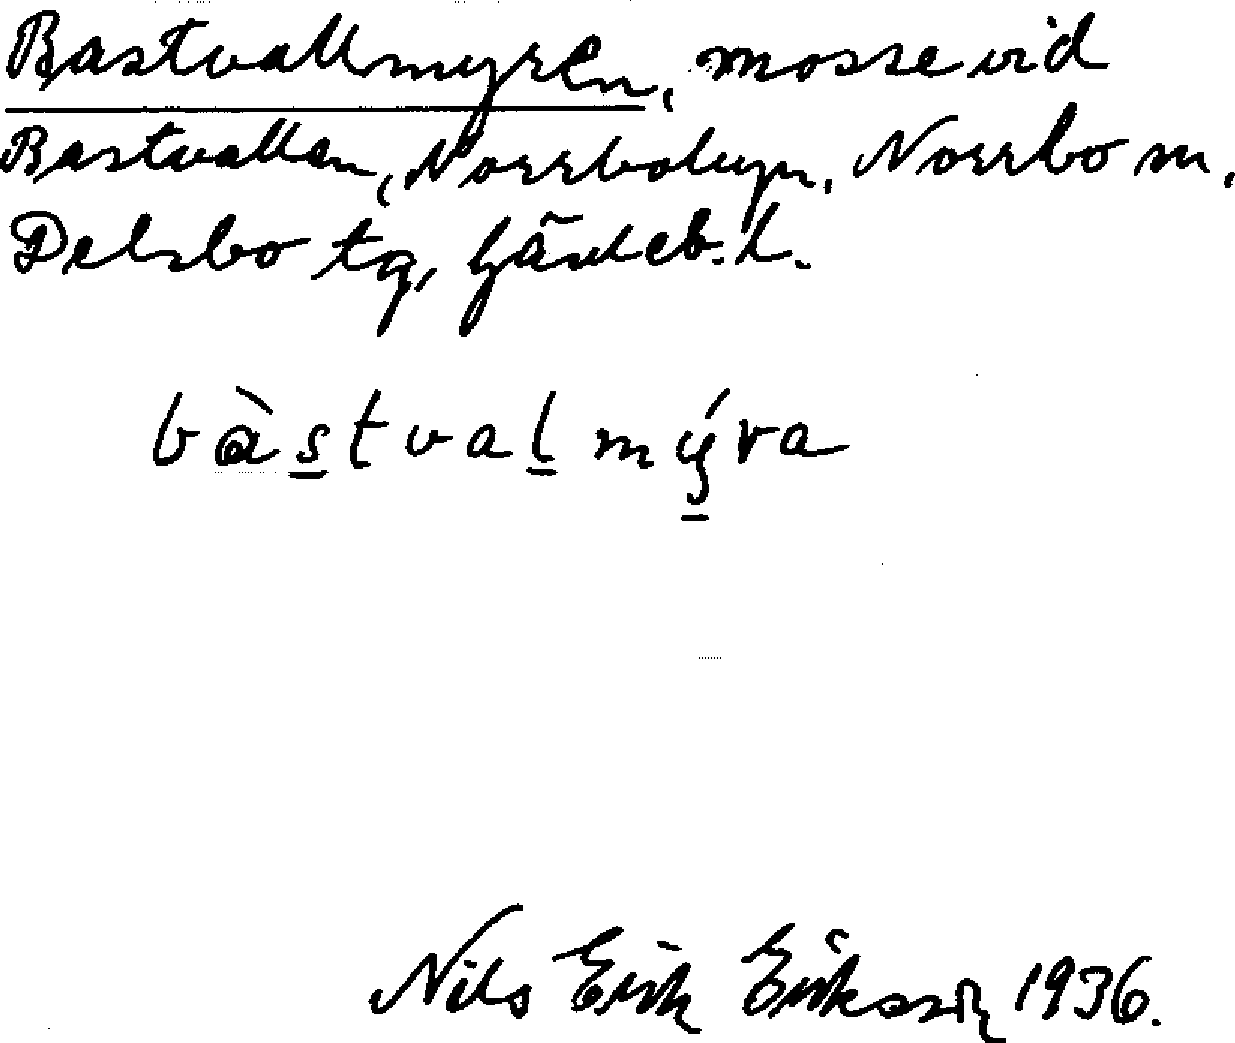 Bastvallmyren, mosse vid
Bastvallen, Norrbobyn, Norrbo sn,
Delsbo tg, Gävleb. l.
bàstvalmýra
Nils Erik Eriksson 1936.